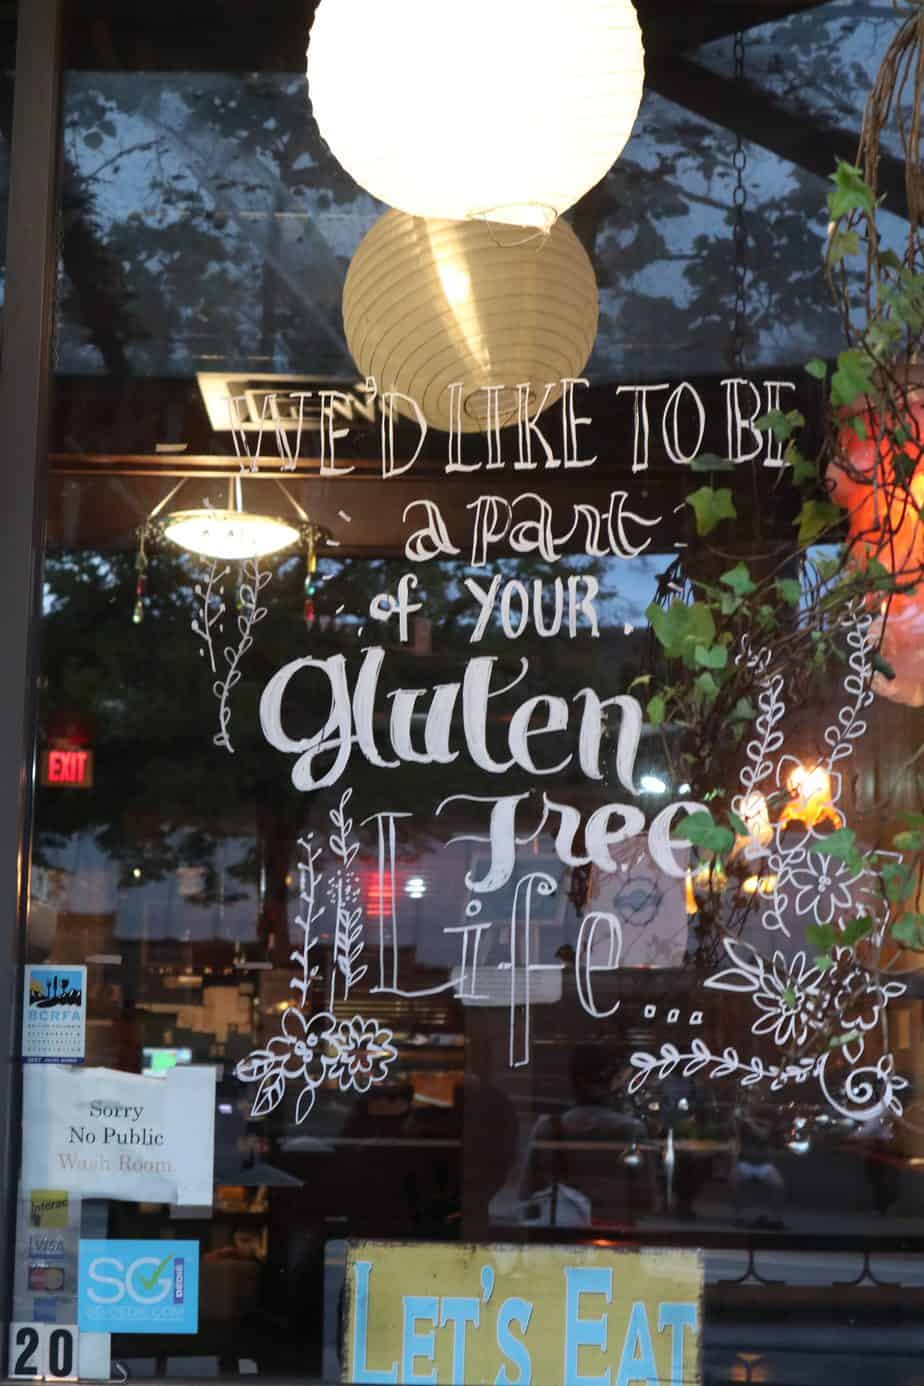 WE'D LIKE TO BE
a part
of YOUR
gluten
free
Life...
EXIT
BCRFA
Sorry
No Public
Wash Room
Interac
VISA
SG
20
LET'S EAT